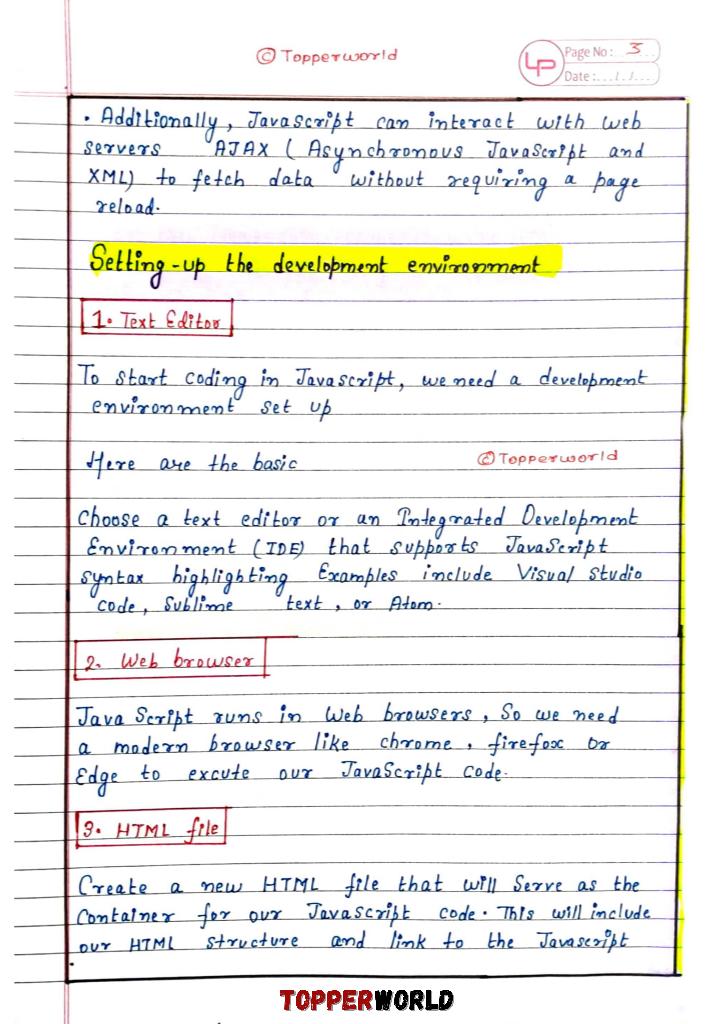 © Topperworld
LP
Page No: 3
Date:.../.../...
• Additionally, Javascript can interact with web
servers AJAX (Asynchronous JavaScript and
XML) to fetch data without requiring a page
reload.
Setting-up the development environment
1. Text Editor
To start coding in Javascript, we need a development
environment set up
Here are the basic
© Topperworld
Choose a text editor or an Integrated Development
Environment (IDE) that supports JavaScript
syntax highlighting Examples include Visual studio
code, Sublime text, or Atom.
2. Web browser
Java Script runs in Web browsers, So we need
a modern browser like chrome, firefox or
Edge to excute our JavaScript code.
3. HTML file
Create a new HTML file that will Serve as the
Container for our Javascript code. This will include
our HTML structure and link to the Javascript
TOPPERWORLD